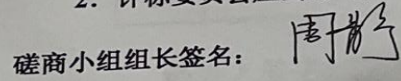 磋商小组组长签名：周静